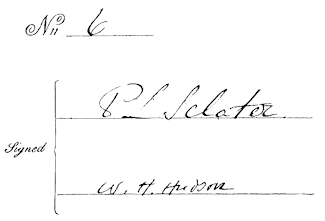 No 6
P L Sclater
Signed
W. H. Hudson